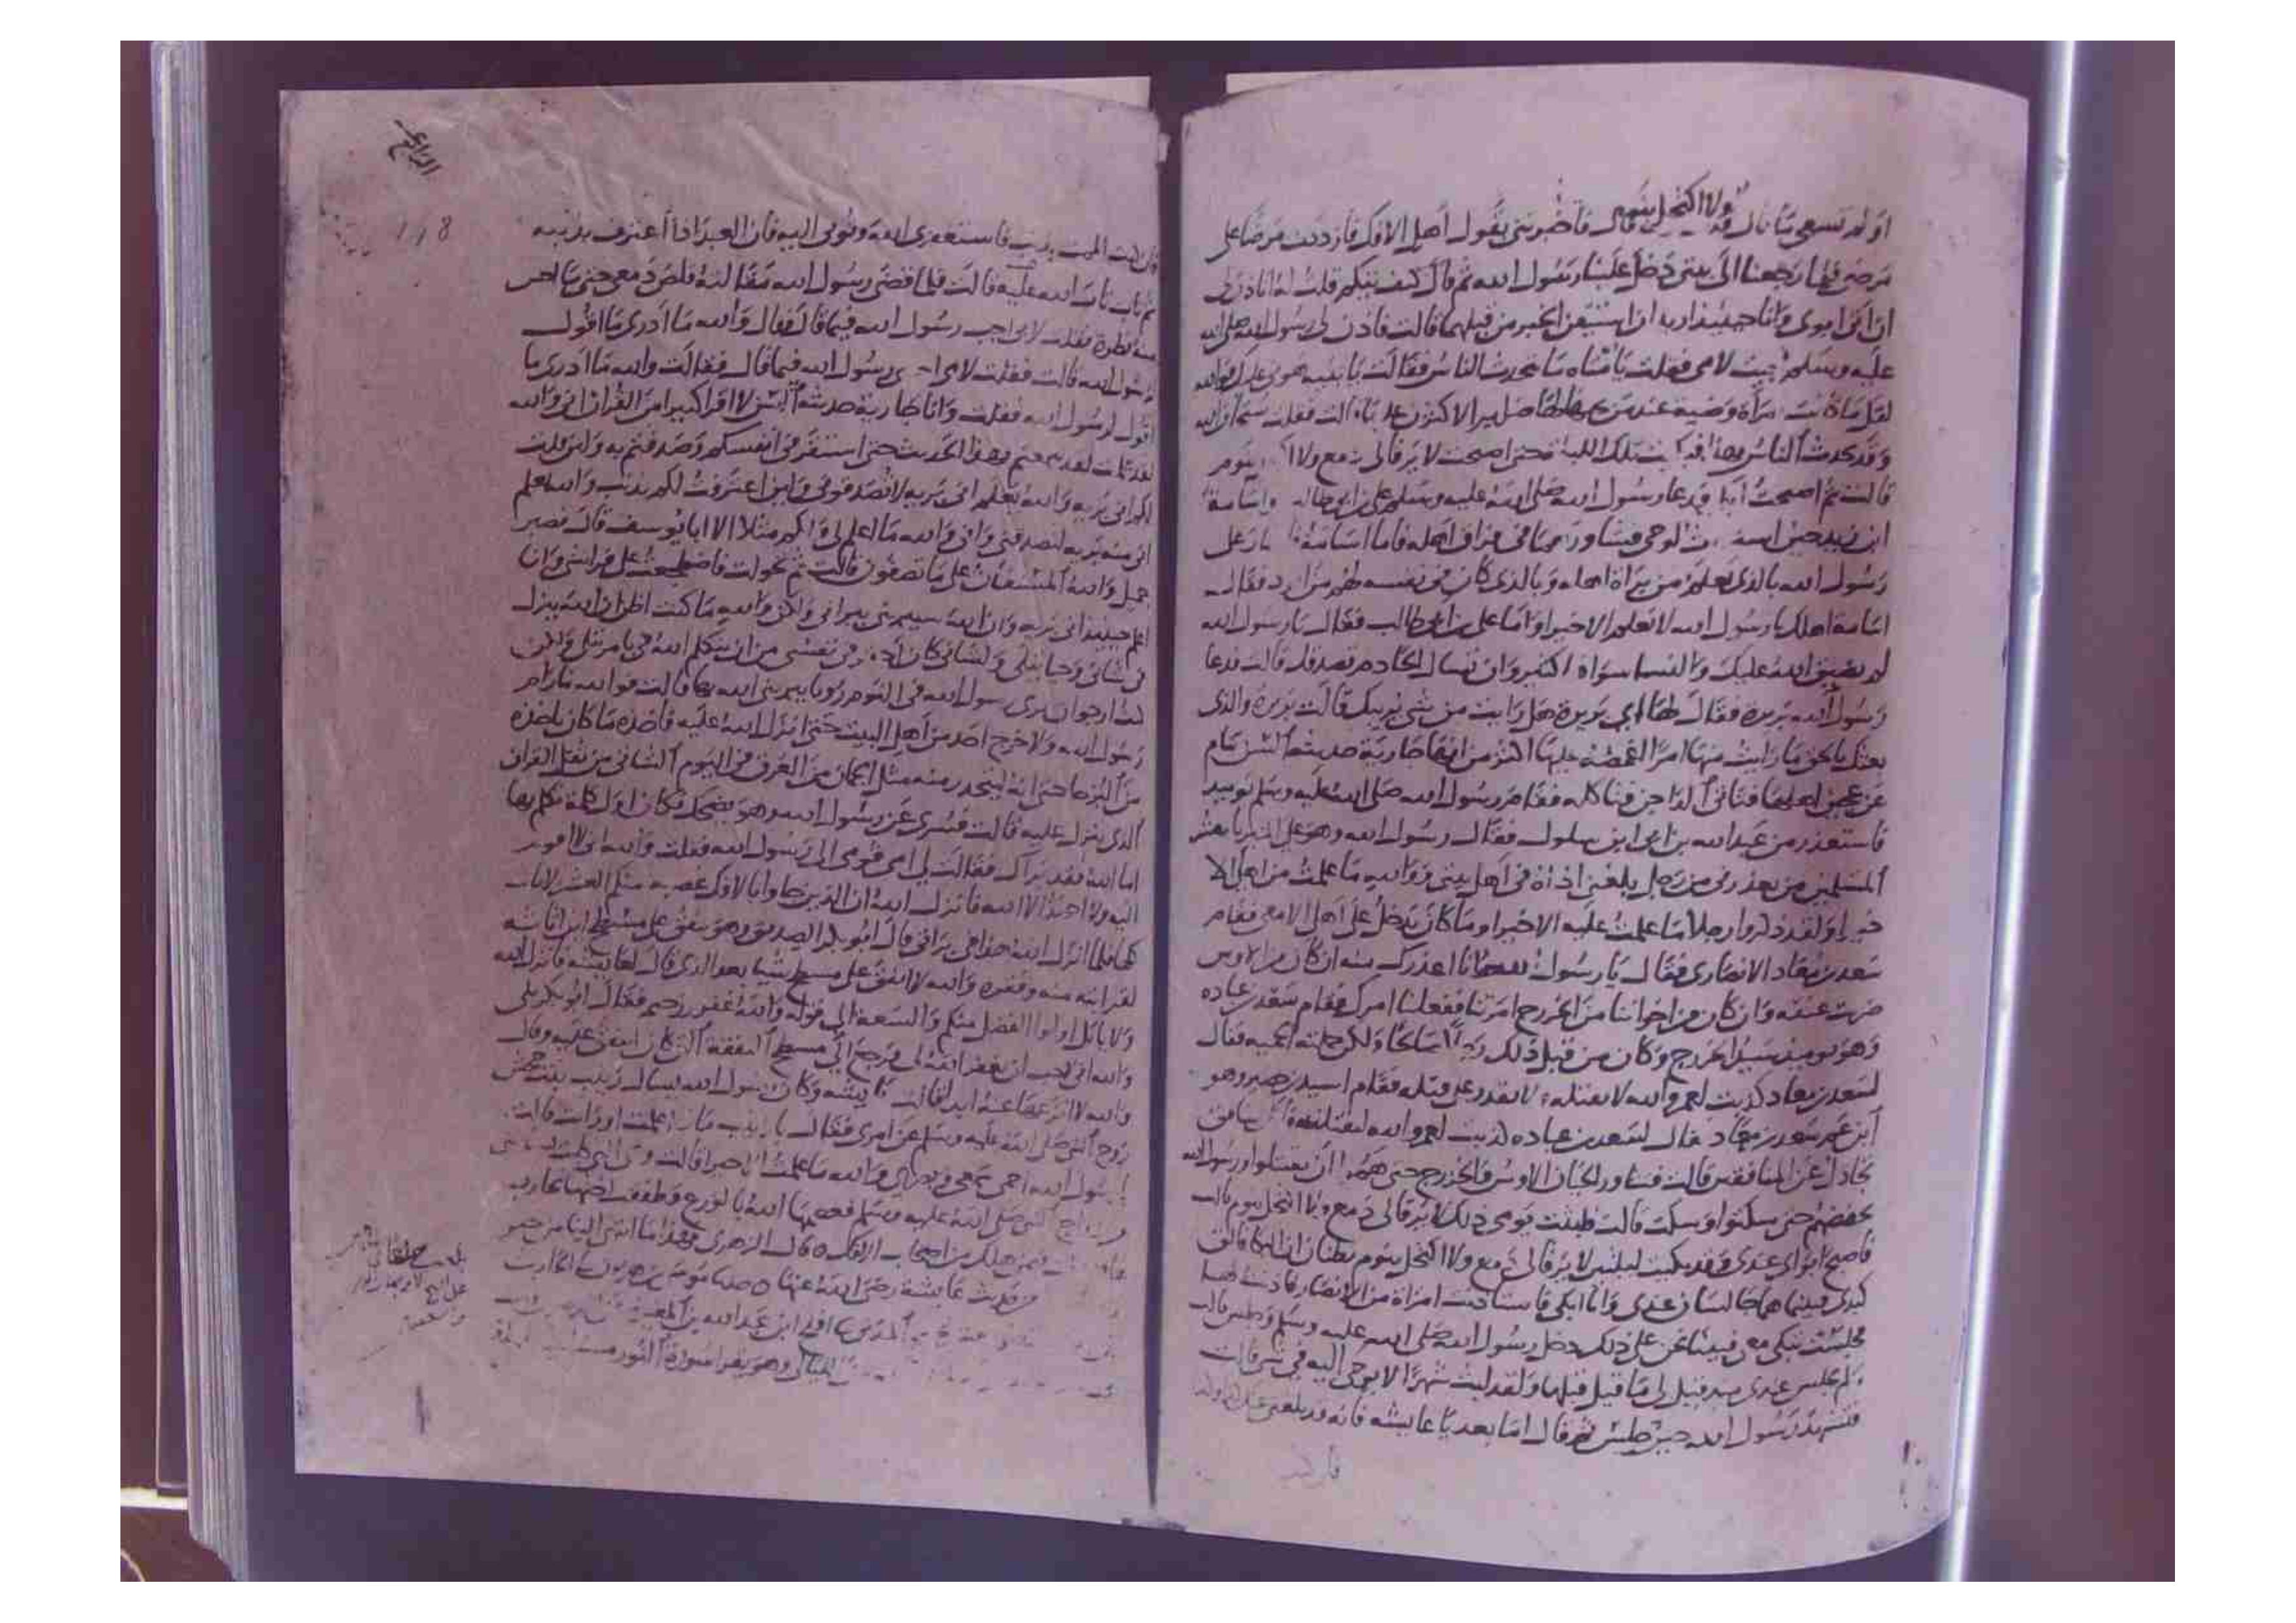 ولا اكتحل بنوم
او لم تسمعي ما قال قلت وما قال فاخبرتني بقول اهل الافك فازددت مرضا على
مرضي فلما رجعنا الى بيتي دخل علينا رسول الله ثم قال كيف تيكم قلت له اتاذن لي
ان اتي ابوي وانا حينئذ اريد ان استيقن الخبر من قبلهما قالت فاذن لي رسول الله صلى الله
عليه وسلم فجيت لامي فقلت يا امتاه ما يتحدث الناس فقالت يا بنيه هوني عليك فوالله
لقل ما كانت امرأة وضية عند رجل يحبها لها ضراير الا كثرن عليها قالت فقلت سبحان الله
وقد تحدث الناس بهذا فبكيت تلك الليلة حتى اصبحت لا يرقا لي دمع ولا اكتحل بنوم
قالت ثم اصبحت ابكي فدعا رسول الله صلى الله عليه وسلم علي بن ابي طالب واسامة
ابن زيد حين استلبث الوحي فيشاورهما في فراق اهله فاما اسامة فاشار على
رسول الله بالذي يعلم من براة اهله وبالذي كان في نفسه لهم من الود فقال
اسامة اهلك يا رسول الله لا نعلم الا خيرا واما علي بن ابي طالب فقال يا رسول الله
لم يضيق الله عليك والنسا سواها كثير وان تسال الخادم تصدقك قالت فدعا
رسول الله بريرة فقال لها اي بريرة هل رايت من شي يريبك قالت بريرة والذي
بعثك بالحق ما رايت منها امرا اغمصه عليها اكثر من انها جارية حديثة السن تنام
عن عجين اهلها فتاتي الداجن فتاكله فقام رسول الله صلى الله عليه وسلم يوميذ
فاستعذر من عبد الله بن ابي ابن سلول فقال رسول الله وهو على المنبر يا معشر
المسلمين من يعذرني من رجل بلغني اذاه في اهل بيتي فوالله ما علمت من اهلي الا
خيرا ولقد ذكروا رجلا ما علمت عليه الا خيرا وما كان يدخل على اهلي الا معي فقام
سعد بن معاذ الانصاري فقال يا رسول الله انا اعذرك منه ان كان من الاوس
ضربت عنقه وان كان من اخواننا من الخزرج امرتنا ففعلنا امرك فقام سعد بن عباده
وهو يوميذ سيد الخزرج وكان من قبل ذلك رجلا صالحا ولكن حملته الحميه فقال
لسعد بن معاذ كذبت لعمر والله لا تقتله ولا تقدر على قتله فقام اسيد بن حضير وهو
ابن عم سعد بن معاذ فقال لسعد بن عباده كذبت لعمر والله لنقتلنه انك منافق
تجادل عن المنافقين قالت فتساور الحيان الاوس والخزرج حتى هموا ان يقتتلوا ورسول الله
يخفضهم حتى سكتوا وسكت قالت فبكيت يومي ذلك لا يرقا لي دمع ولا اكتحل بنوم قالت
فاصبح ابواي عندي وقد بكيت ليلتين لا يرقا لي دمع ولا اكتحل بنوم يظنان ان البكا فالق
كبدي فبينما هما جالسان عندي وانا ابكي فاستاذنت امراة من الانصار فاذنت لها
فجلست تبكي معي فبينا نحن على ذلك دخل رسول الله صلى الله عليه وسلم وجلس قالت
ولم يجلس عندي منذ قيل لي ما قيل قبلها ولقد لبث شهرا لا يوحى اليه في شي قالت
فتشهد رسول الله حين جلس ثم قال اما بعد يا عايشه فانه قد بلغني عنك
فان كنت
الرابع
118
فان كنت الممت بذنب فاستغفري الله وتوبي اليه فان العبد اذا اعترف بذنبه
ثم تاب تاب الله عليه قالت فلما قضى رسول الله مقالته قلص دمعي حتى ما احس
منه قطرة فقلت لابي اجب رسول الله فيما قال فقال والله ما ادري ما اقول
لرسول الله قالت فقلت لامي اجيبي رسول الله فيما قال فقالت والله ما ادري ما
اقول لرسول الله فقلت وانا جارية حديثة السن لا اقرا كثيرا من القران اني والله
لقد علمت لقد سمعتم بهذا الحديث حتى استقر في انفسكم وصدقتم به ولين قلت
لكم اني برية والله يعلم اني برية لا تصدقوني ولين اعترفت لكم بذنب والله يعلم
اني منه برية لتصدقني واني والله ما اعلم لي ولكم مثلا الا ابا يوسف قال فصبر
جميل والله المستعان على ما تصفون قالت ثم تحولت فاضطجعت على فراشي وان
اعلم حينئذ اني برية وان الله سيبريني ببراتي ولكن والله ما كنت اظن ان الله ينزل
في شاني وحيا يتلى ولشاني كان احقر في نفسي من ان يتكلم الله في بامر يتلى ولكن
كنت ارجو ان يرى رسول الله في النوم رويا يبريني الله بها قالت فوالله ما رام
رسول الله ولا خرج احد من اهل البيت حتى انزل الله عليه فاخذه ما كان ياخذه
من البرحا حتى انه ليتحدر منه مثل الجمان من العرق في اليوم الشاتي من ثقل القران
الذي ينزل عليه قالت فسري عن رسول الله وهو يضحك فكان اول كلمة تكلم بها
اما الله فقد براك فقالت لي امي قومي الى رسول الله فقلت والله اني لا اقوم
اليه ولا احمد الا الله فانزل الله ان الذين جاوا بالافك عصبة منكم العشر الايات
كلها فلما انزل الله هذا في براتي قال ابو بكر الصديق وهو ينفق على مسطح ابن اثاثه
لقرابته منه وفقره والله لا انفق على مسطح شيا بعد الذي قال لعايشه فانزل الله
ولا ياتل اولوا الفضل منكم والسعة الى قوله والله غفور رحيم فقال ابو بكر بلى
والله اني لاحب ان يغفر الله لي فرجع الى مسطح النفقة التي كان ينفق عليه وقال
والله لا انزعها عنه ابدا قالت عايشه وكان رسول الله يسال زينب بنت جحش
زوج النبي صلى الله عليه وسلم عن امري فقال يا زينب ماذا علمت او رايت قالت
يا رسول الله احمي سمعي وبصري والله ما علمت الا خيرا قالت وهي التي كانت
من ازواج النبي صلى الله عليه وسلم فعصمها الله بالورع وطفقت اختها تحارب
لها فهلكت فيمن هلك من اصحاب الافك قال الزهري فهذا ما انتهى الينا من خبر
من حديث عايشة رضي الله عنها
وهو يقرا سورة النور